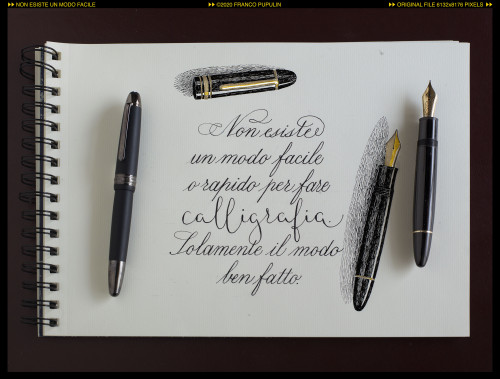 NON ESISTE UN MODO FACILE
©2020 FRANCO PUPULIN
ORIGINAL FILE 6132x8176 PIXELS
Non esiste
un modo facile
o rapido per fare
calligrafia.
Solamente il modo
ben fatto.